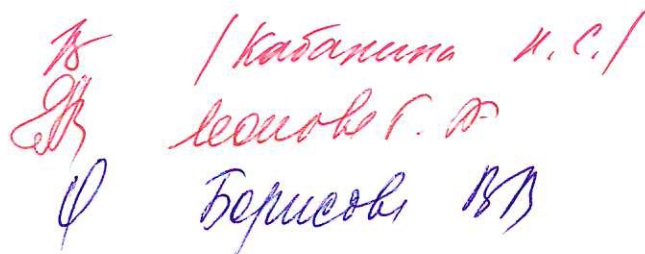 /Кабанина Н.С./
Леонова Г.
Борисова ВВ